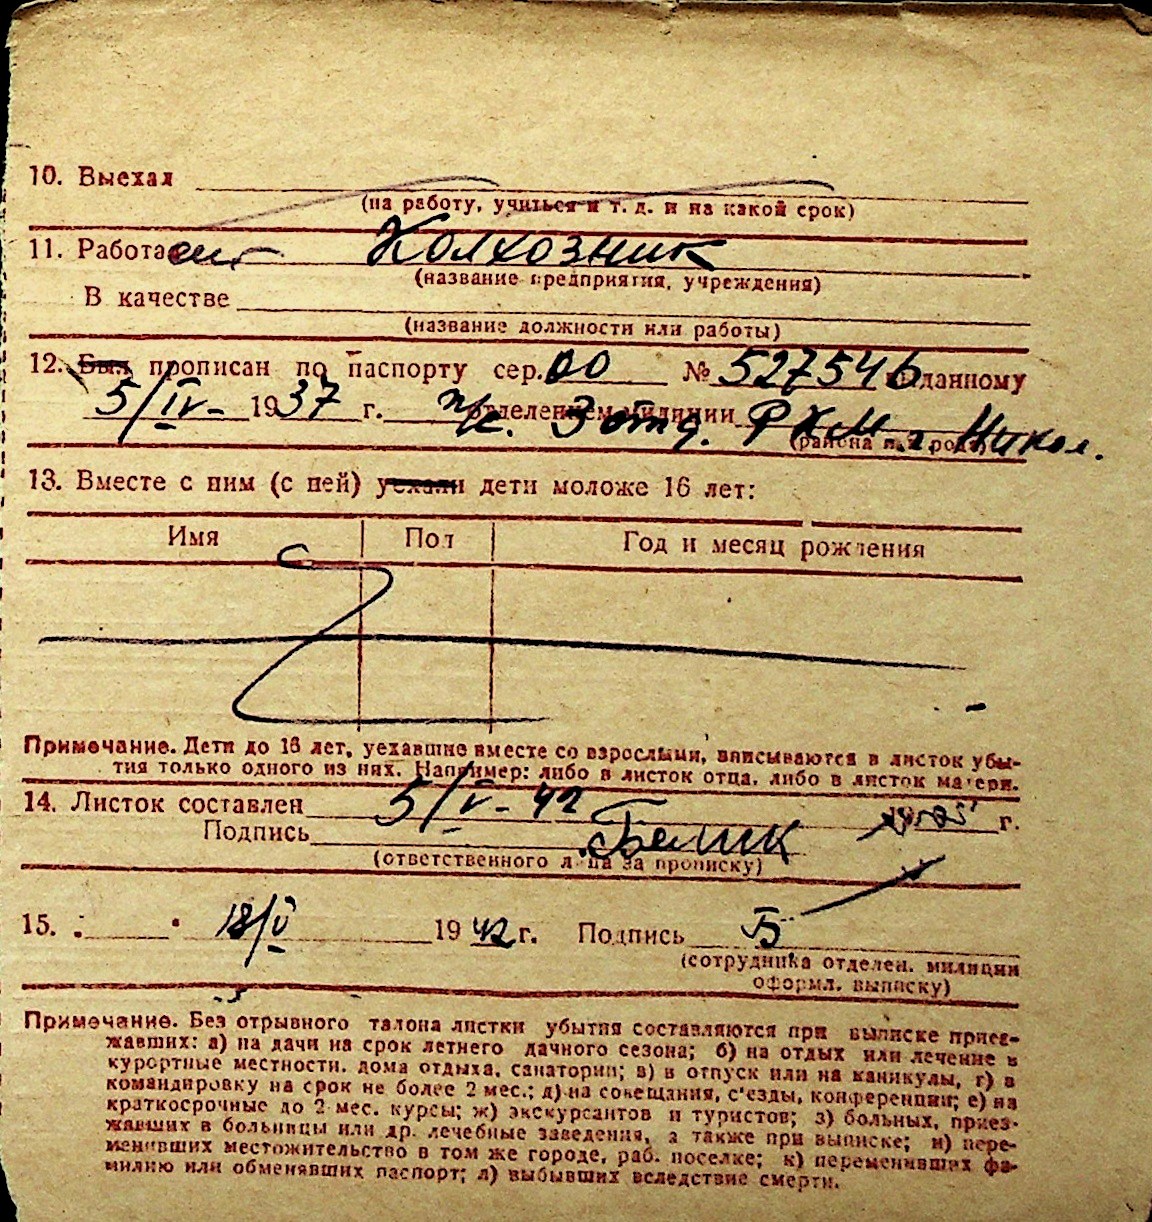 10. Выехал
(на работу, учиться и т. д. и на какой срок)
11. Работает Колхозник
(название предприятия, учреждения)
В качестве
(название должности или работы)
12. Был прописан по паспорту сер. 00 № 527546 выданному
5/IV- 1937 г. п/с. отделением милиции 3 отд. РКМ г. Никол.
(района и города)
13. Вместе с ним (с ней) уехали дети моложе 16 лет:
Имя Пол Год и месяц рождения
Примечание. Дети до 16 лет, уехавшие вместе со взрослыми, вписываются в листок убы-
тия только одного из них. Например: либо в листок отца, либо в листок матери.
14. Листок составлен 5/V- 42 г.
Подпись Белик
(ответственного лица за прописку)
15. 18/V 1942 г. Подпись Б
(сотрудника отделен. милиции
оформл. выписку)
Примечание. Без отрывного талона листки убытия составляются при выписке приез-
жавших: а) на дачи на срок летнего дачного сезона; б) на отдых или лечение в
курортные местности, дома отдыха, санатории; в) в отпуск или на каникулы, г) в
командировку на срок не более 2 мес.; д) на совещания, с'езды, конференции; е) на
краткосрочные до 2 мес. курсы; ж) экскурсантов и туристов; з) больных, приез-
жавших в больницы или др. лечебные заведения, а также при выписке; и) пере-
менивших местожительство в том же городе, раб. поселке; к) переменивших фа-
милию или обменявших паспорт; л) выбывших вследствие смерти.